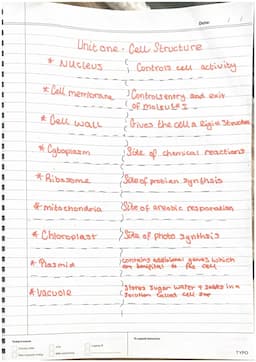 Date: / /
Unit one - Cell Structure
* Nucleus Controls cell activity
* Cell membrane Controls entry and exit
of molecules
* Cell wall Gives the cell a Rigid Structure
* Cytoplasm Site of chemical reactions
* Ribosome Site of protien synthisis
* mitochondria Site of areobic resporation
* Chloroplast Site of photo synthisis
* Plasmid contains additional genes which
are benifital to the cell
* Vacuole Stores sugar water + salts in a
solution called cell sap
TYPO